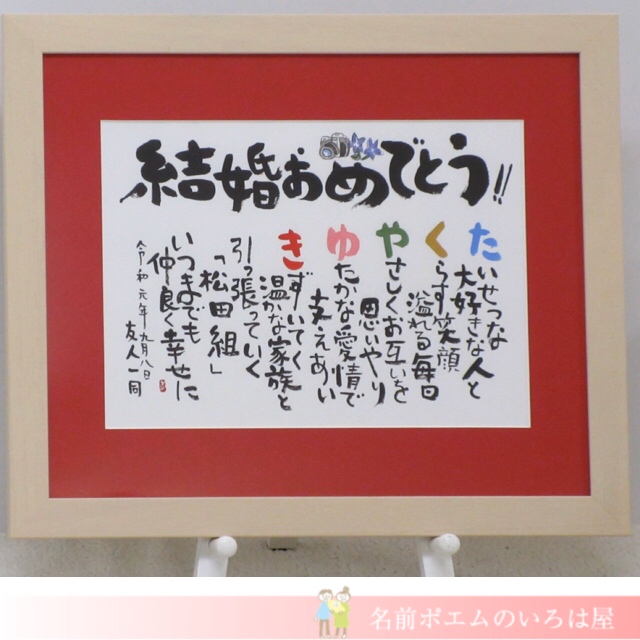 結婚おめでとう!!
たいせつな
大好きな人と
くらす笑顔
溢れる毎日
やさしくお互いを
思いやり
ゆたかな愛情で
支えあい
きずいてく
温かな家族と
引っ張っていく
「松田組」
いつまでも
仲良く幸せに
令和元年九月八日
友人一同
名前ポエムのいろは屋